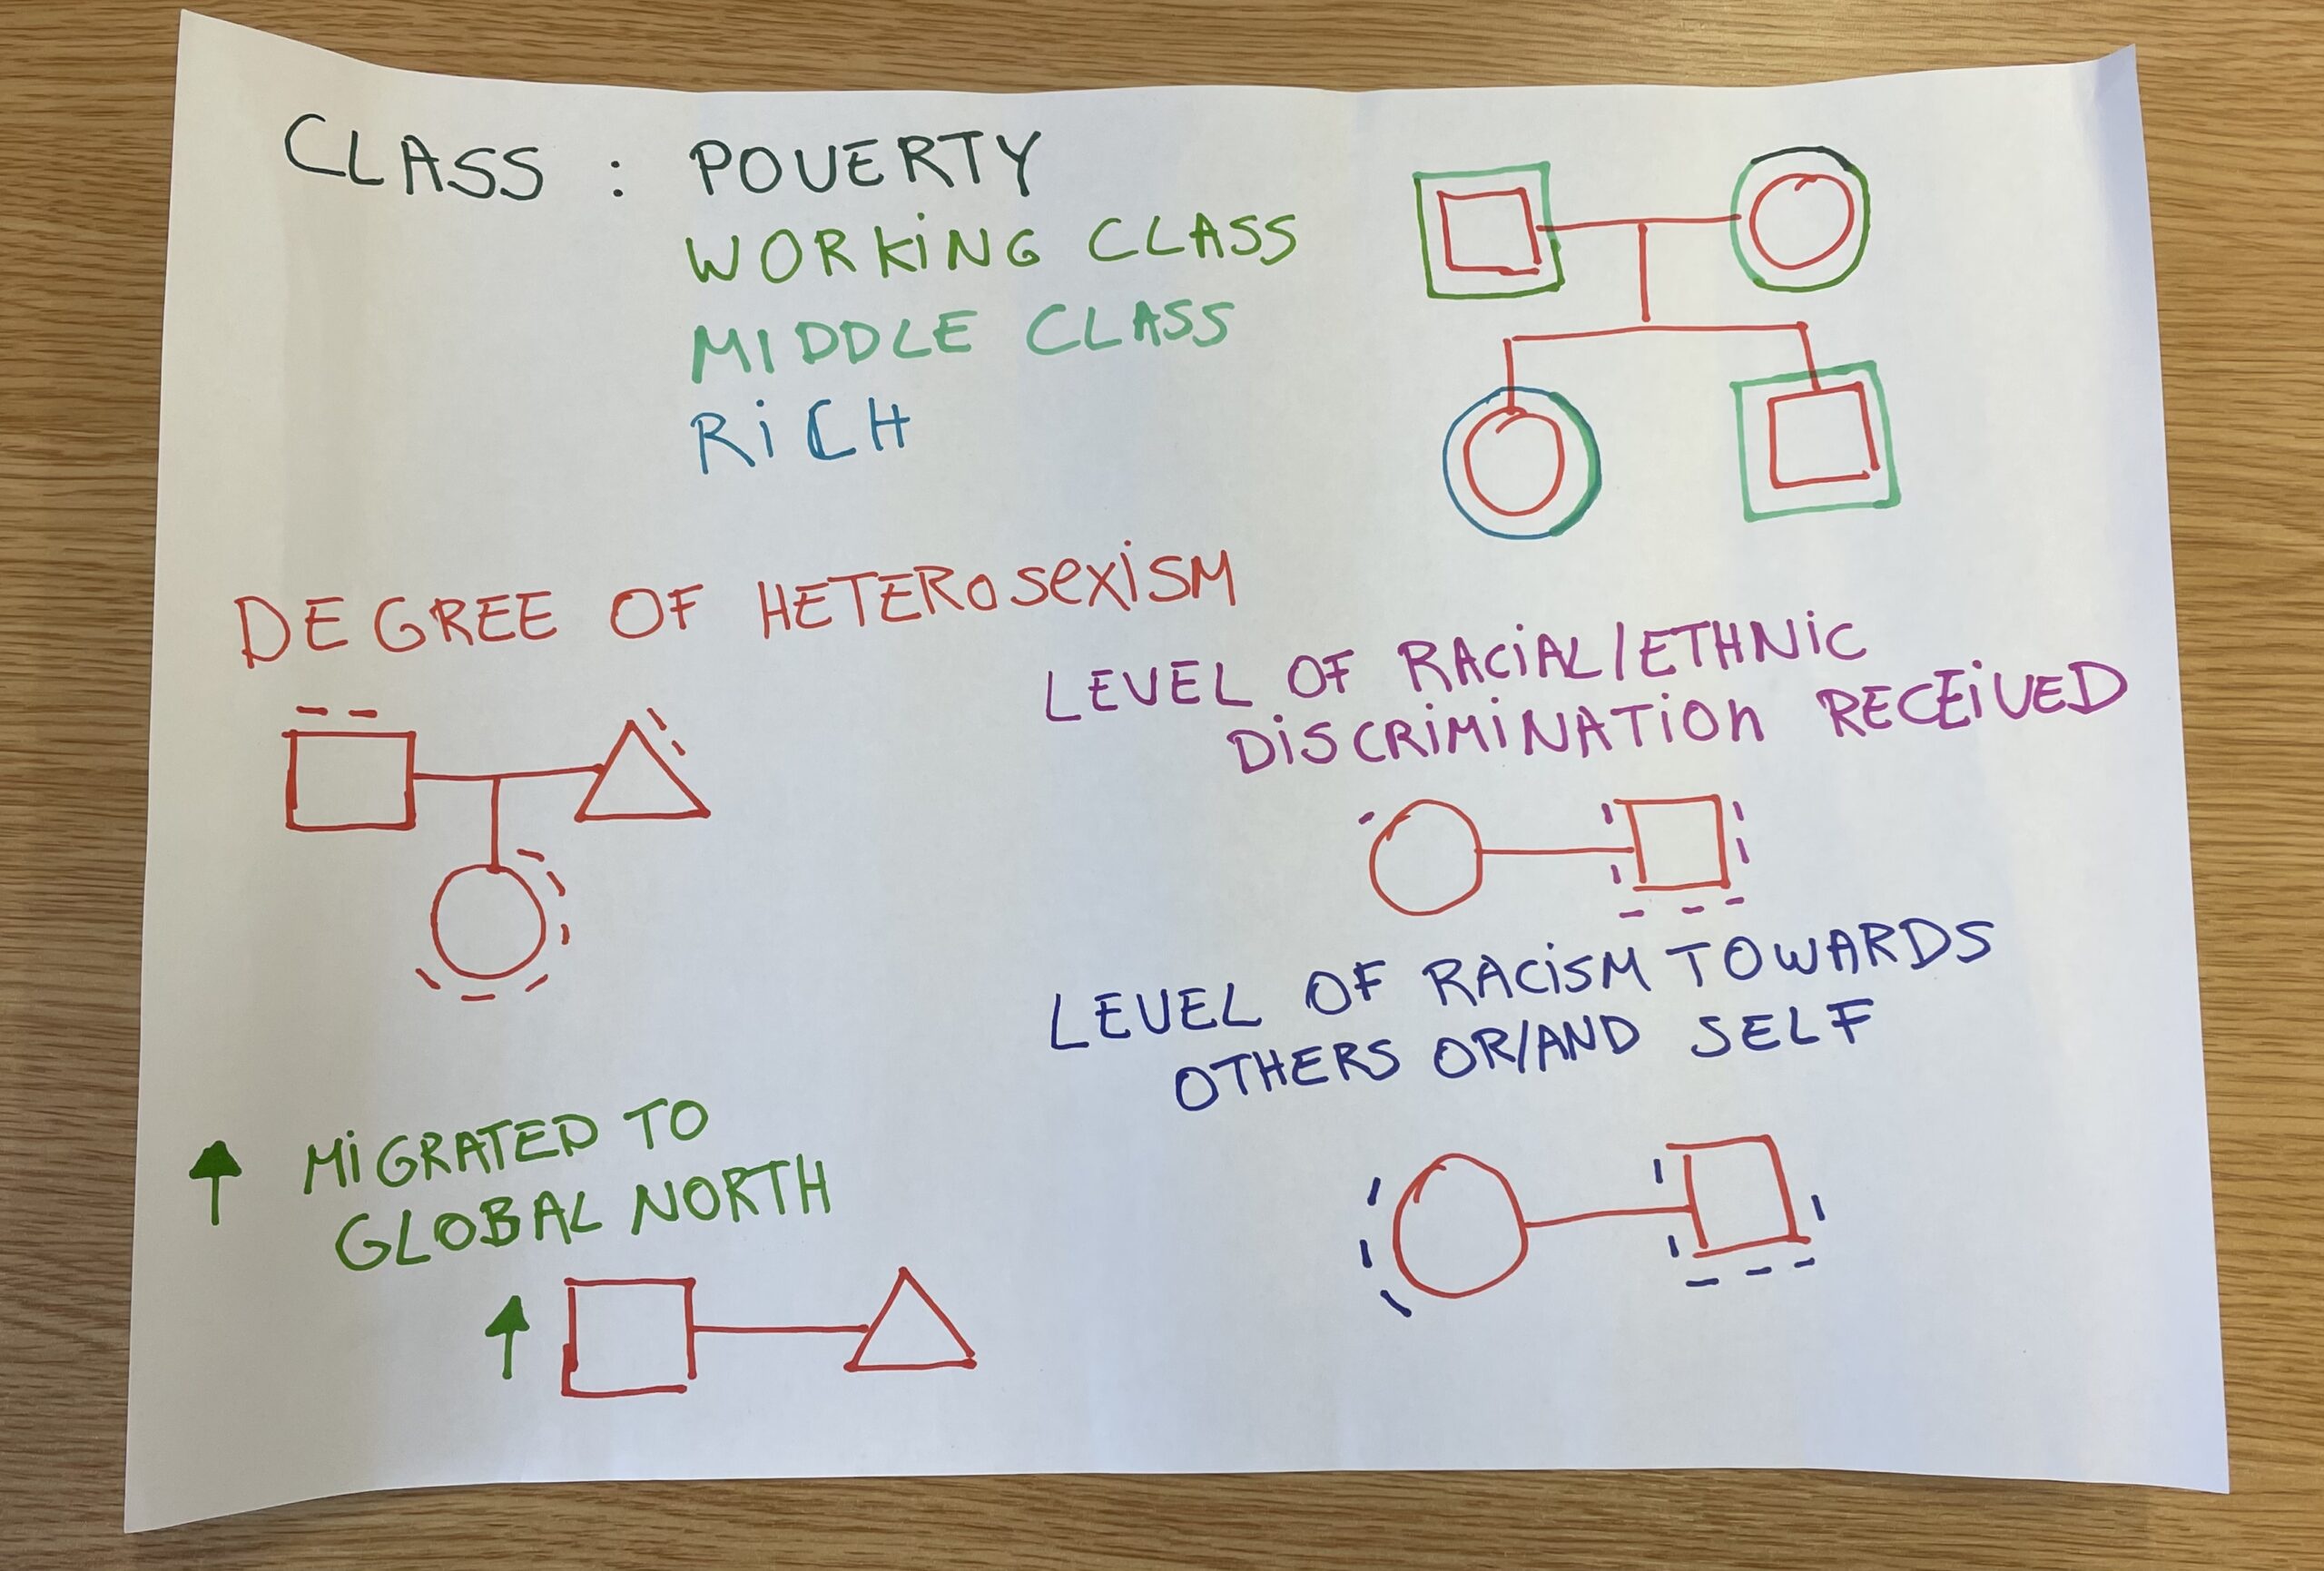 CLASS : POVERTY
WORKiNG CLASS
MIDDLE CLASS
RiCH
DEGREE OF HETEROSexiSM
LEVEL OF RACiAL/ETHNiC
DiSCRiMiNATiON RECEiVED
LEVEL OF RACiSM TOWARDS
OTHERS OR/AND SELF
MiGRATED TO
GLOBAL NORTH